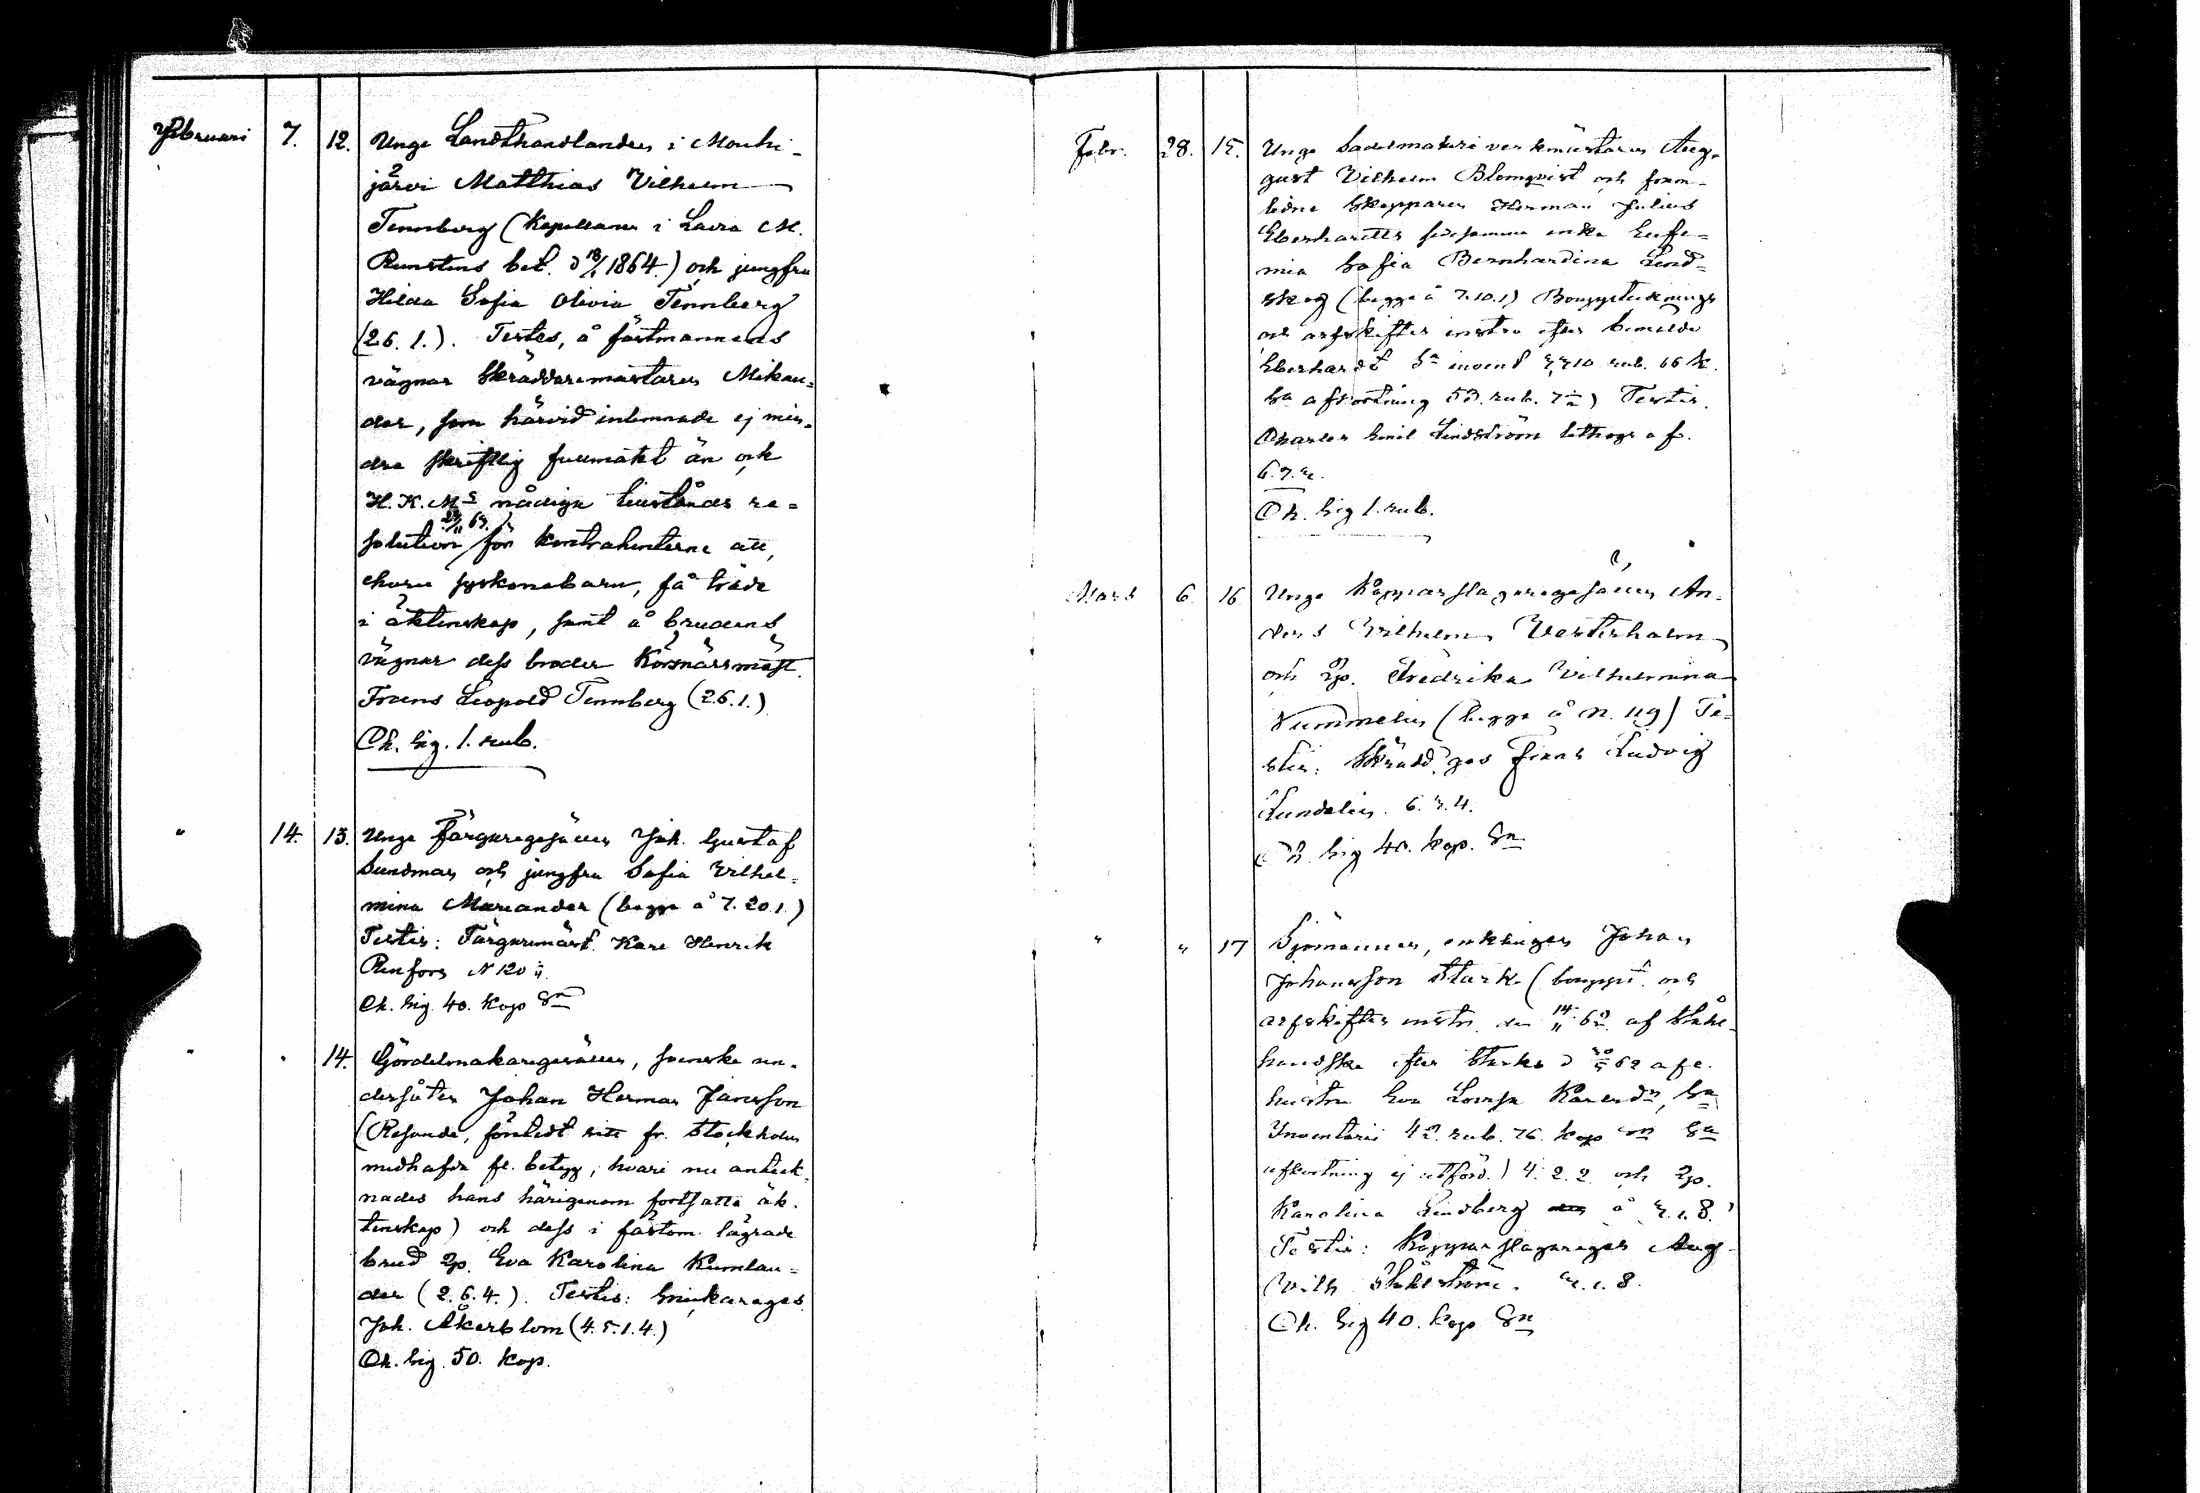 Februari 7. 12. Unge Landthandlanden i Mouhi-
järvi Matthias Vilhelm
Tennberg (Kapellanen i Lavia M.
Runstens bet. d 18/1 1864.) och jungfru
Hilda Sofia Olivia Tennberg
(26. 1.). Testes, å fästmannens
vägnar Skräddaremästaren Mikan-
der, som härvid inlemnade ej min-
dre skriftlig fullmakt än ock
H. K. Ms nådiga tillstånds re-
solution för kontrahenterne att,
ehuru syskonebarn, få träda
i äktenskap, samt å brudens
vägnar dess broder Körsnärsmäst.
Frans Leopold Tennberg (26.1.)
Ch. Sig. 1. rub.
" 14. 13. Unge Färgaregesällen Joh. Gustaf
Sundman och jungfru Sofia Vilhel-
mina Mariander (begge å 7. 20. 1.)
Testis: Färgaremäst. Karl Henrik
Renfors N 120
Ch. Sig. 40. Kop Sn
" " 14. Gördelmakaregesällen, svenske un-
dersåten Johan Herman Janson
(Resande, försedt fr. Stockholm
medhafda fl. betyg, hvari nu anteck-
nades hans härigenom fortsatta äk-
tenskap) och dess i fästom. lägrade
brud Jp. Eva Karolina Kumlan-
der (2. 6. 4.). Testis: Snickareges.
Joh. Åkerblom (4. 5. 1. 4.)
Ch. Sig. 50. Kop.
Febr. 28. 15. Unge Sadelmakeri verkmästaren Aug-
gust Vilhelm Blomqvist och fram-
lidne Skepparen Herman Julius
Eberhardts enka Eufe-
mia Sofia Bernhardina Lind-
skog (begge å 7. 10. 1) Boupptecknings
och arfskiftes instr. efter bemälde
Eberhardt invend rub. 66 K.
afkortning rub. Testis.
Charles Emil Lindström lithograf.
6. 7.
Ch. Sig 1. rub.
Mars 6. 16 Unge Kopparslagaregesällen An-
ders Vilhelm Vesterholm
och Jp. Fredrika Vilhelmina
Nummelin (begge å N. 119) Te-
stis: Skrädd. ges Frans Ludvig
Lundelin. 6. 3. 4.
Ch. Sig 40. Kop. Sn
" " 17 Sjömannen, enklingen Johan
Johansson Stark (bouppt. och
arfskiftes instr. den 14/11 63 af Stål-
handske efter Starks d 62 afl.
hustru Eva Lovisa Karlsdr,
Inventarii rub. 76. kop
afkortning ej utförd.) 4. 2. 2. och Jp.
Karolina Lindberg å 8.
Testis: Kopparslagareges Aug.
Vilh Ståhlström. 8.
Ch. Sig 40. Kop Sn